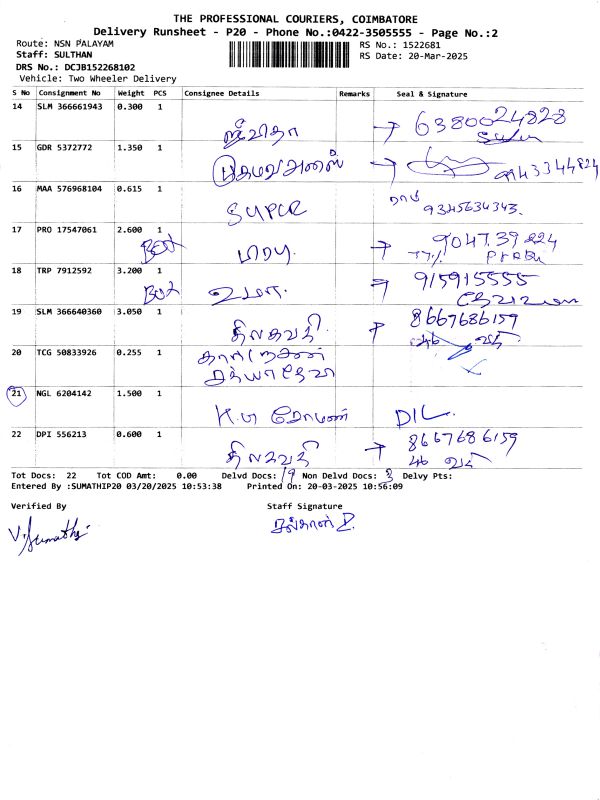 THE PROFESSIONAL COURIERS, COIMBATORE
Delivery Runsheet - P20 - Phone No.:0422-3505555 - Page No.:2
Route: NSN PALAYAM RS No.: 1522681
Staff: SULTHAN RS Date: 20-Mar-2025
DRS No.: DCJB152268102
Vehicle: Two Wheeler Delivery
S No Consignment No Weight PCS Consignee Details Remarks Seal & Signature
14 SLM 366661943 0.300 1
ஜீவிதா → 6380024828
15 GDR 5372772 1.350 1
→ 9943344824
16 MAA 576968104 0.615 1
SUPER 9345634343.
17 PRO 17547061 2.600 1
BOX → 904739224
PRABU
18 TRP 7912592 3.200 1
BOX உமா. → 915915555
19 SLM 366640360 3.050 1
திலகவதி → 8667686159
20 TCG 50833926 0.255 1
21 NGL 6204142 1.500 1
K.ஜ DIL.
22 DPI 556213 0.600 1
திலகவதி → 8667686159
Tot Docs: 22 Tot COD Amt: 0.00 Delvd Docs: 19 Non Delvd Docs: 3 Delvy Pts:
Entered By :SUMATHIP20 03/20/2025 10:53:38 Printed On: 20-03-2025 10:56:09
Verified By Staff Signature
V. Sumathi